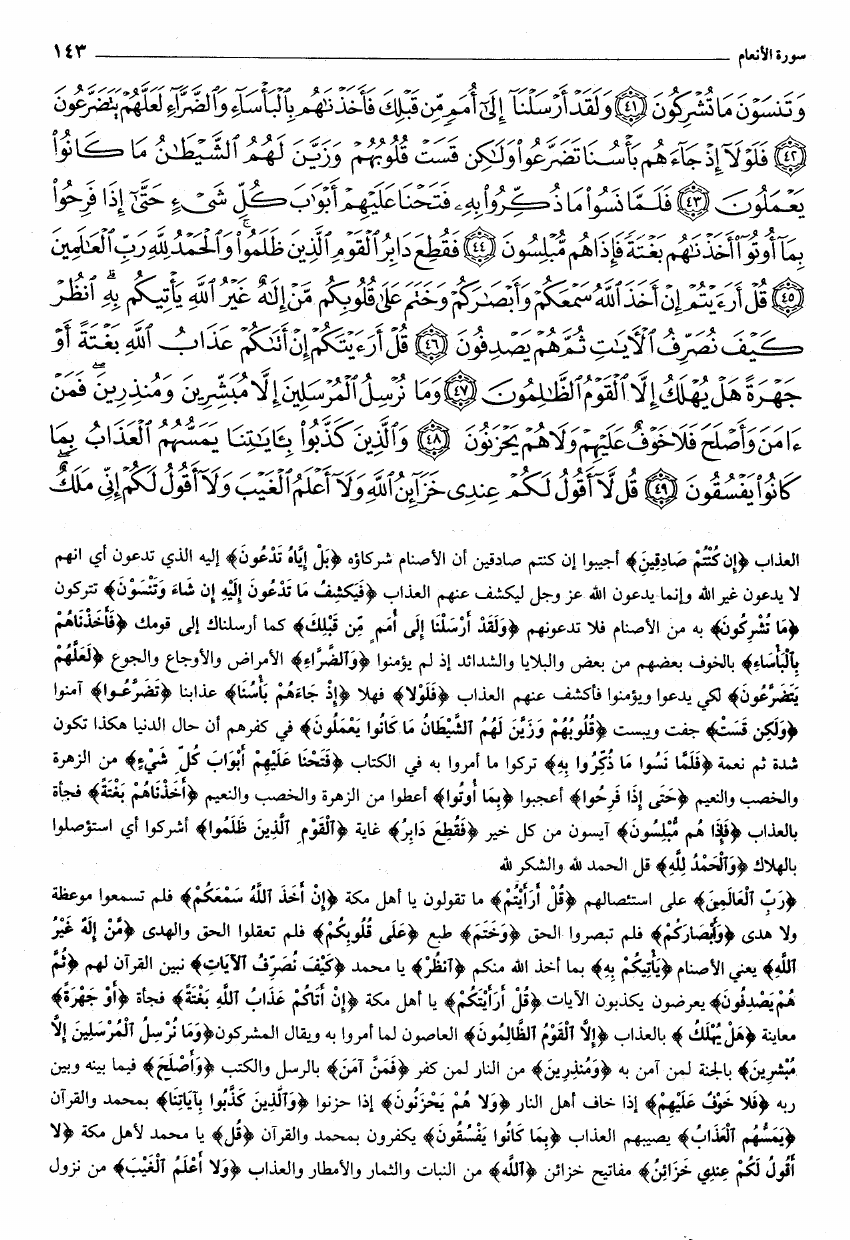 سورة الأنعام ١٤٣
وَتَنسَوْنَ مَا تُشْرِكُونَ ﴿٤١﴾ وَلَقَدْ أَرْسَلْنَآ إِلَىٰٓ أُمَمٍ مِّن قَبْلِكَ فَأَخَذْنَٰهُم بِٱلْبَأْسَآءِ وَٱلضَّرَّآءِ لَعَلَّهُمْ يَتَضَرَّعُونَ
﴿٤٢﴾ فَلَوْلَآ إِذْ جَآءَهُم بَأْسُنَا تَضَرَّعُوا۟ وَلَٰكِن قَسَتْ قُلُوبُهُمْ وَزَيَّنَ لَهُمُ ٱلشَّيْطَٰنُ مَا كَانُوا۟
يَعْمَلُونَ ﴿٤٣﴾ فَلَمَّا نَسُوا۟ مَا ذُكِّرُوا۟ بِهِۦ فَتَحْنَا عَلَيْهِمْ أَبْوَٰبَ كُلِّ شَىْءٍ حَتَّىٰٓ إِذَا فَرِحُوا۟
بِمَآ أُوتُوٓا۟ أَخَذْنَٰهُم بَغْتَةً فَإِذَا هُم مُّبْلِسُونَ ﴿٤٤﴾ فَقُطِعَ دَابِرُ ٱلْقَوْمِ ٱلَّذِينَ ظَلَمُوا۟ ۚ وَٱلْحَمْدُ لِلَّهِ رَبِّ ٱلْعَٰلَمِينَ
﴿٤٥﴾ قُلْ أَرَءَيْتُمْ إِنْ أَخَذَ ٱللَّهُ سَمْعَكُمْ وَأَبْصَٰرَكُمْ وَخَتَمَ عَلَىٰ قُلُوبِكُم مَّنْ إِلَٰهٌ غَيْرُ ٱللَّهِ يَأْتِيكُم بِهِ ۗ ٱنظُرْ
كَيْفَ نُصَرِّفُ ٱلْءَايَٰتِ ثُمَّ هُمْ يَصْدِفُونَ ﴿٤٦﴾ قُلْ أَرَءَيْتَكُمْ إِنْ أَتَىٰكُمْ عَذَابُ ٱللَّهِ بَغْتَةً أَوْ
جَهْرَةً هَلْ يُهْلَكُ إِلَّا ٱلْقَوْمُ ٱلظَّٰلِمُونَ ﴿٤٧﴾ وَمَا نُرْسِلُ ٱلْمُرْسَلِينَ إِلَّا مُبَشِّرِينَ وَمُنذِرِينَ ۖ فَمَنْ
ءَامَنَ وَأَصْلَحَ فَلَا خَوْفٌ عَلَيْهِمْ وَلَا هُمْ يَحْزَنُونَ ﴿٤٨﴾ وَٱلَّذِينَ كَذَّبُوا۟ بِـَٔايَٰتِنَا يَمَسُّهُمُ ٱلْعَذَابُ بِمَا
كَانُوا۟ يَفْسُقُونَ ﴿٤٩﴾ قُل لَّآ أَقُولُ لَكُمْ عِندِى خَزَآئِنُ ٱللَّهِ وَلَآ أَعْلَمُ ٱلْغَيْبَ وَلَآ أَقُولُ لَكُمْ إِنِّى مَلَكٌ ۖ
العذاب ﴿إِن كُنْتُمْ صَادِقِينَ﴾ أجيبوا إن كنتم صادقين أن الأصنام شركاؤه ﴿بَلْ إِيَّاهُ تَدْعُونَ﴾ إليه الذي تدعون أي انهم
لا يدعون غير الله وإنما يدعون الله عز وجل ليكشف عنهم العذاب ﴿فَيَكشِفُ مَا تَدْعُونَ إِلَيْهِ إِن شَاءَ وَتَنْسَوْنَ﴾ تتركون
﴿مَا تُشْرِكُونَ﴾ به من الأصنام فلا تدعونهم ﴿وَلَقَدْ أَرْسَلْنَا إِلَى أُمَمٍ مِّن قَبْلِكَ﴾ كما أرسلناك إلى قومك ﴿فَأَخَذْنَاهُمْ
بِٱلْبَأْسَاءِ﴾ بالخوف بعضهم من بعض والبلايا والشدائد إذ لم يؤمنوا ﴿وَٱلضَّرَّاءِ﴾ الأمراض والأوجاع والجوع ﴿لَعَلَّهُمْ
يَتَضَرَّعُونَ﴾ لكي يدعوا ويؤمنوا فأكشف عنهم العذاب ﴿فَلَوْلا﴾ فهلا ﴿إِذْ جَاءَهُمْ بَأْسُنَا﴾ عذابنا ﴿تَضَرَّعُوا﴾ آمنوا
﴿وَلَكِن قَسَتْ﴾ جفت ويبست ﴿قُلُوبُهُمْ وَزَيَّنَ لَهُمُ ٱلشَّيْطَانُ مَا كَانُوا يَعْمَلُونَ﴾ في كفرهم أن حال الدنيا هكذا تكون
شدة ثم نعمة ﴿فَلَمَّا نَسُوا مَا ذُكِّرُوا بِهِ﴾ تركوا ما أمروا به في الكتاب ﴿فَتَحْنَا عَلَيْهِمْ أَبْوَابَ كُلِّ شَيْءٍ﴾ من الزهرة
والخصب والنعيم ﴿حَتَى إِذَا فَرِحُوا﴾ أعجبوا ﴿بِمَا أُوتُوا﴾ أعطوا من الزهرة والخصب والنعيم ﴿أَخَذْنَاهُمْ بَغْتَةً﴾ فجأة
بالعذاب ﴿فَإِذَا هُم مُّبْلِسُونَ﴾ آيسون من كل خير ﴿فَقُطِعَ دَابِرُ﴾ غاية ﴿ٱلْقَوْمِ ٱلَّذِينَ ظَلَمُوا﴾ أشركوا أي استؤصلوا
بالهلاك ﴿وَٱلْحَمْدُ لِلَّهِ﴾ قل الحمد لله والشكر لله
﴿رَبِّ ٱلْعَالَمِينَ﴾ على استئصالهم ﴿قُلْ أَرَأَيْتُمْ﴾ ما تقولون يا أهل مكة ﴿إِنْ أَخَذَ ٱللَّهُ سَمْعَكُمْ﴾ فلم تسمعوا موعظة
ولا هدى ﴿وَأَبْصَارَكُمْ﴾ فلم تبصروا الحق ﴿وَخَتَمَ﴾ طبع ﴿عَلَى قُلُوبِكُمْ﴾ فلم تعقلوا الحق والهدى ﴿مَّنْ إِلَهٌ غَيْرُ
ٱللَّهِ﴾ يعني الأصنام ﴿يَأْتِيكُمْ بِهِ﴾ بما أخذ الله منكم ﴿ٱنظُرْ﴾ يا محمد ﴿كَيْفَ نُصَرِّفُ ٱلآيَاتِ﴾ نبين القرآن لهم ﴿ثُمَّ
هُمْ يَصْدِفُونَ﴾ يعرضون يكذبون الآيات ﴿قُلْ أَرَأَيْتَكُمْ﴾ يا أهل مكة ﴿إِنْ أَتَاكُمْ عَذَابُ ٱللَّهِ بَغْتَةً﴾ فجأة ﴿أَوْ جَهْرَةً﴾
معاينة ﴿هَلْ يُهْلَكُ﴾ بالعذاب ﴿إِلَّا ٱلْقَوْمُ ٱلظَّالِمُونَ﴾ العاصون لما أمروا به ويقال المشركون ﴿وَمَا نُرْسِلُ ٱلْمُرْسَلِينَ إِلَّا
مُبَشِّرِينَ﴾ بالجنة لمن آمن به ﴿وَمُنذِرِينَ﴾ من النار لمن كفر ﴿فَمَنَّ آمَنَ﴾ بالرسل والكتب ﴿وَأَصْلَحَ﴾ فيما بينه وبين
ربه ﴿فَلا خَوْفٌ عَلَيْهِمْ﴾ إذا خاف أهل النار ﴿وَلا هُمْ يَحْزَنُونَ﴾ إذا حزنوا ﴿وَٱلَّذِينَ كَذَّبُوا بِآيَاتِنَا﴾ بمحمد والقرآن
﴿يَمَسُّهُم ٱلْعَذَابُ﴾ يصيبهم العذاب ﴿بِمَا كَانُوا يَفْسُقُونَ﴾ يكفرون بمحمد والقرآن ﴿قُل﴾ يا محمد لأهل مكة ﴿لا
أَقُولُ لَكُمْ عِندِي خَزَائِنُ﴾ مفاتيح خزائن ﴿ٱللَّهِ﴾ من النبات والثمار والأمطار والعذاب ﴿وَلا أَعْلَمُ ٱلْغَيْبَ﴾ من نزول